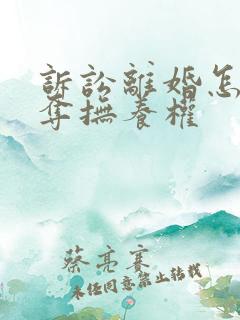 訴訟離婚怎
奪撫養權
蔡亮賽
未经同意禁止转载